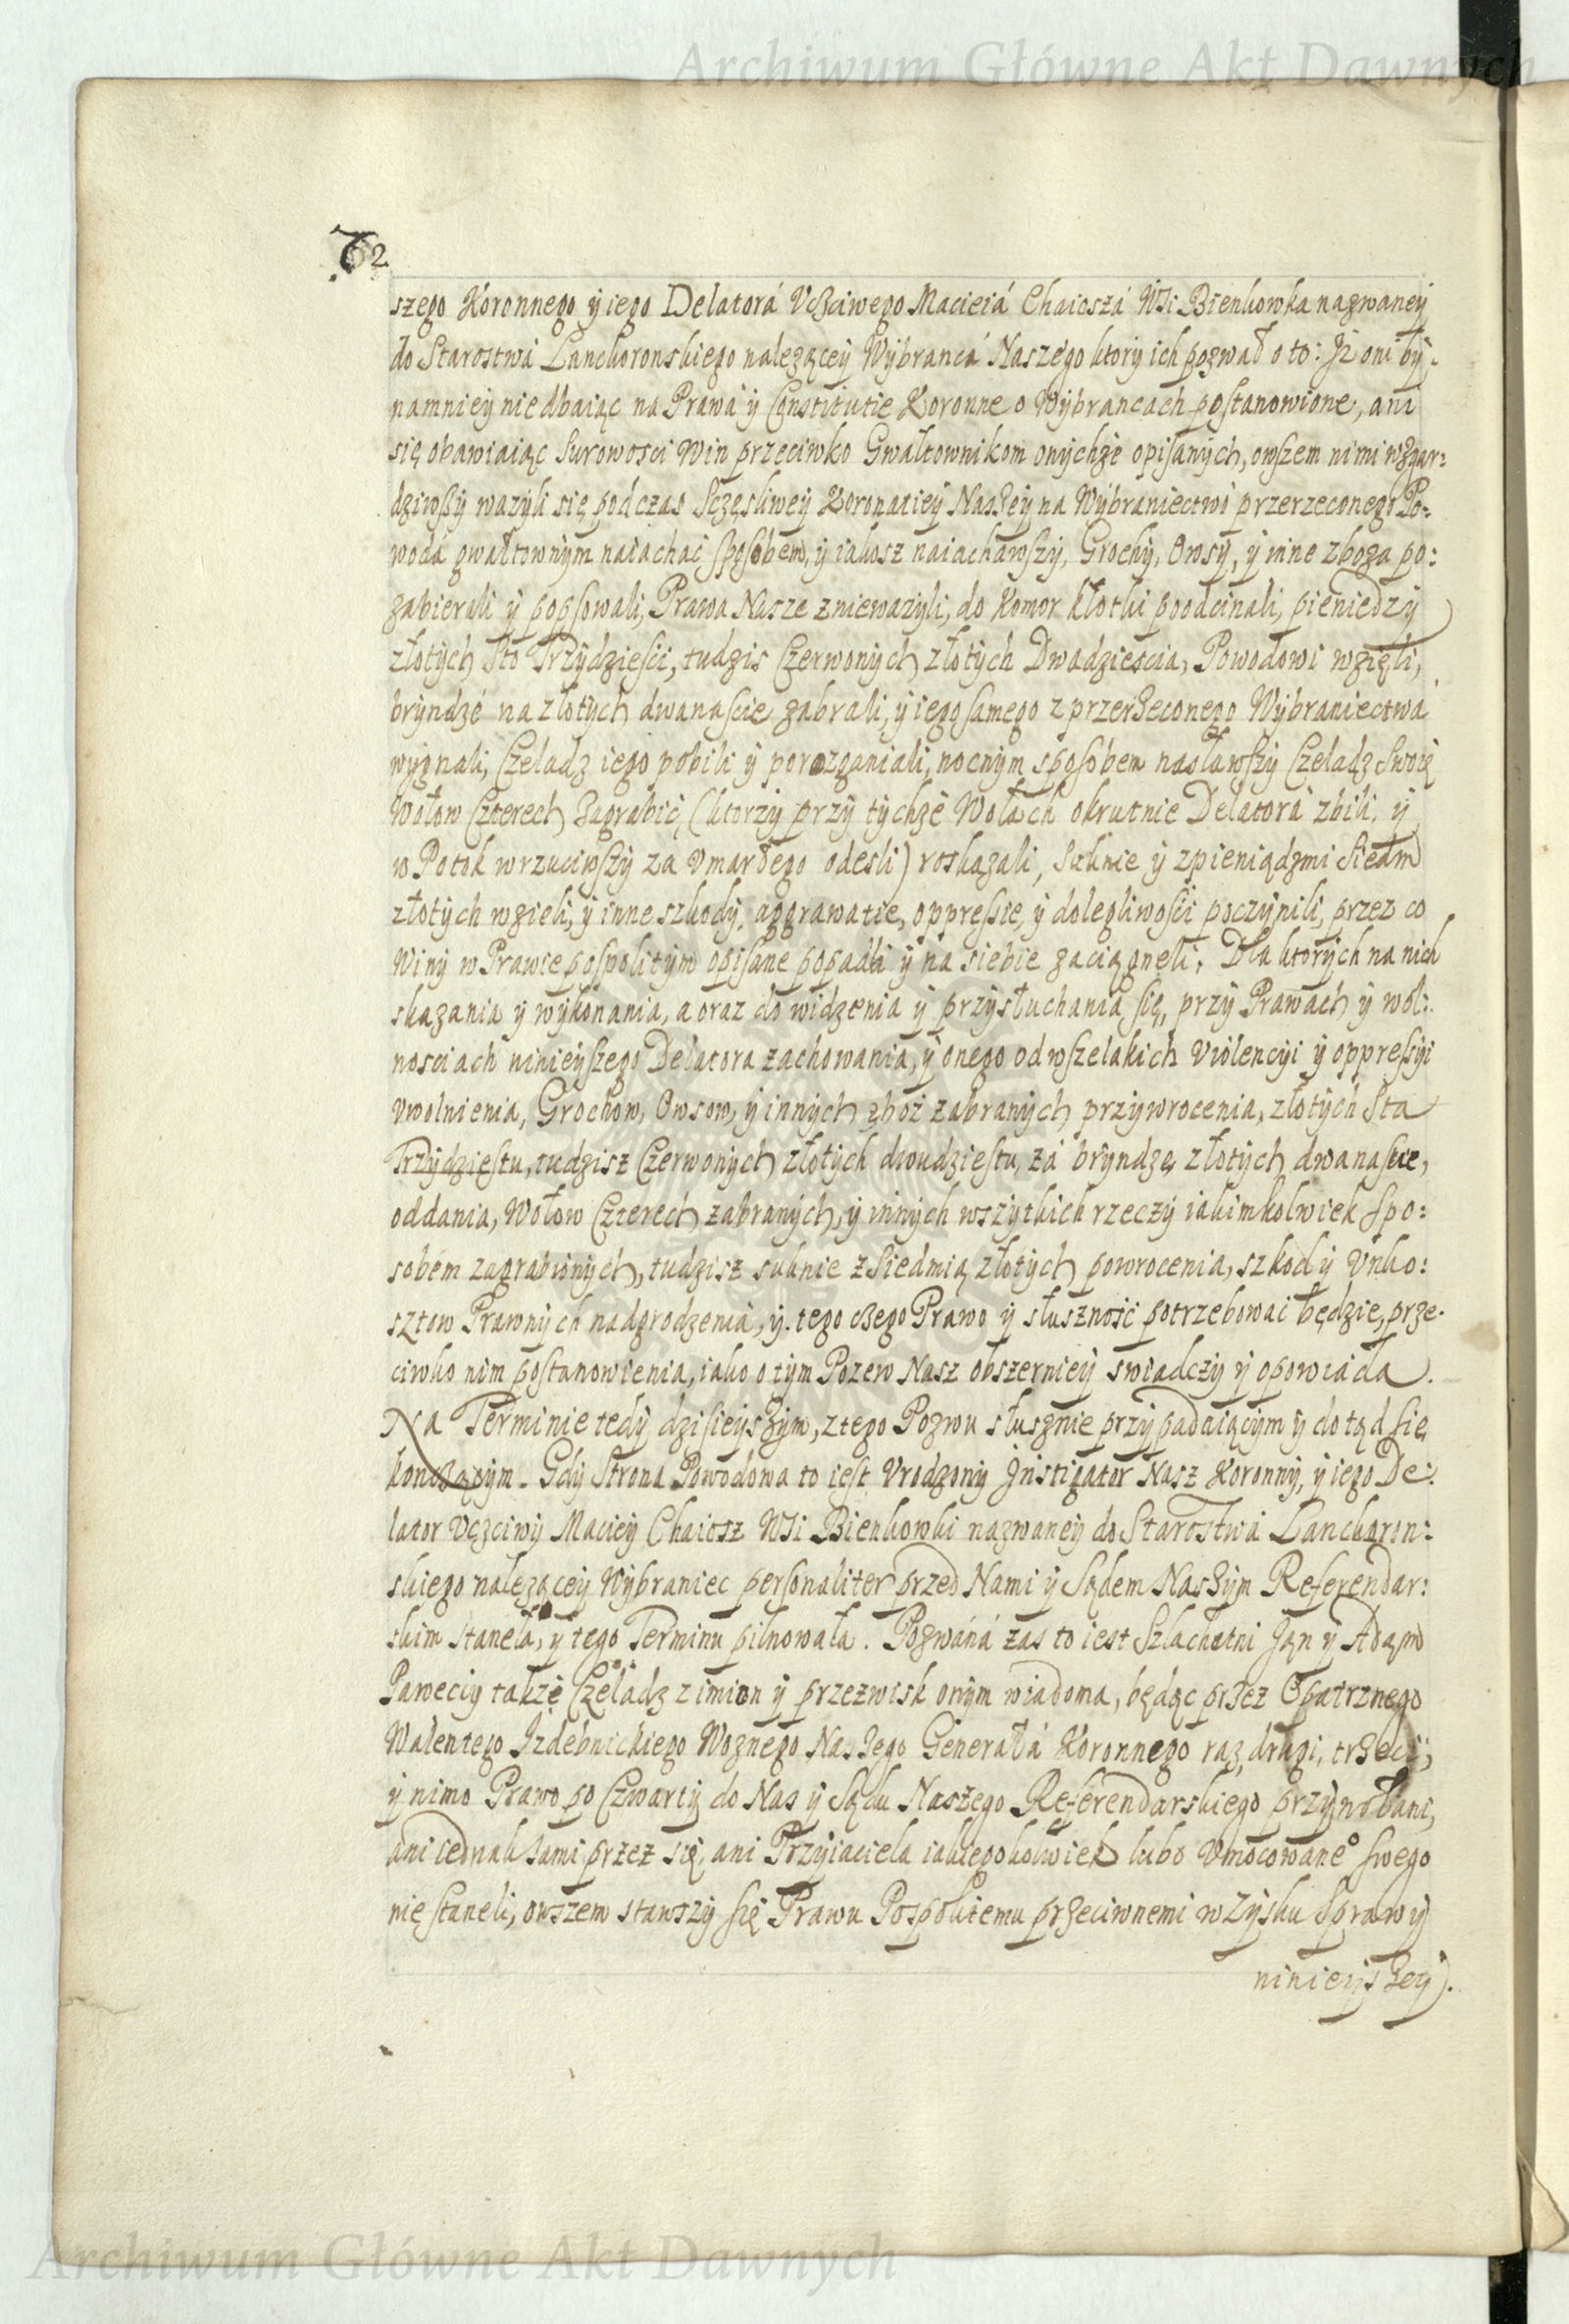 Archiwum Główne Akt Dawnych
62
szego Koronnego y iego Delatorá Vcżciwego Macieiá Chaioszá WSi Bienkowka nazwaney
do Starostwá Lanckoronskiego nalezącey Wybrancá Naszego ktory ich pozwał o to: Jż oni by-
namniey nie dbaiąc na Prawa y Constitutie Koronne o Wybrancach postanowione, ani
się obawiaiąc Surowosci Win przeciwko Gwałtownikom onychże opisanych, owszem nimi wzgar:
dziwszy wazyli się podczas Sczęsliwey Koronatiey Naszey na Wybraniectwo przerzeconego Po:
wodá gwałtownym naiachać sposobem, y iakosz naiachawszy, Grochy, Owsy, y inne zboza po:
zabierali y popsowali, Prawa Nasze zniewazyli, do Komor kłotki poodcinali, pieniedzy
złotych Sto Trzydziesci, tudzis Czerwonych złotych Dwadziescia, Powodowi wzięli,
bryndze na złotych dwanascie zabrali, y iego samego z przerzeconego Wybraniectwá
wygnali, Czeladz iego pobili y porozganiali, nocnym sposobem nasławszy Czeladz Swoię
Wołow Czterech Zagrabić, (ktorzy przy tychże Wołach okrutnie Delatora zbili, y
w Potok wrzuciwszy za Vmarłego odesli) roskazali, Suknie y z pieniądzmi Siedm
złotych wzieli, y inne szkody, aggrawatie, oppressie, y dolegliwosci poczynili, przez co
Winy w Prawie pospolitym opisane popadli y na siebie zaciągneli; Dla ktorych na nich
skazania y wykonania, a oraz do widzenia y przysłuchania się, przy Prawach y wol:
nosciach ninieyszego Delatora zachowania, y onego od wszelakich Violencyi y oppressyi
Vwolnienia, Grochow, Owsow, y innych zboz zabranych przywrocenia, złotych Sta
Trzydziestu, tudzisz Czerwonych złotych dwudziestu, zá bryndzę złotych dwanascie,
oddania, Wołow Czterech zabranych, y innych wszytkich rzeczy iakimkolwiek spo:
sobem zagrabionych, tudzisz suknie z Siedmią złotych powrocenia, szkod y Vnko:
sztow Prawnych nadgrodzenia, y tego czego Prawo y słusznosć potrzebować będzie, prze-
ciwko nim postanowienia, iako o tym Pozew Nasz obszerniey swiadczy y opowiada.
Na Terminie tedy dzisieyszym, z tego Pozwu słusznie przypadaiącym y do tąd się
konczącym. Gdy Strona Powodowa to iest Vrodzony Jnstigator Nasz Koronny, y iego De:
lator Vczciwy Maciey Chaiosz WSi Bienkowki nazwaney do Starostwá Lanckoron:
skiego nalezącey Wybraniec personaliter przed Nami y Sądem Naszym Referendar:
skim Stanęła, y tego Terminu pilnowała. Pozwáná zas to iest Szlachetni Jan y Adam
Paweciy takze Czeladz z imion y przezwisk onym wiadoma, będąc przez Opatrznego
Walentego Jzdebnickiego Woznego Naszego Generałá Koronnego raz, drugi, trzeci,
y nimo Prawo po Czwarty do Nas y Sądu Naszego Referendarskiego przywołani,
ani iednak sami przez się, ani Przyiaciela iakiegokolwiek lubo Vmocowane° swego
nie staneli, owszem stawszy się Prawu Pospolitemu przeciwnemi w Zysku Sprawy
ninieyszey.
Archiwum Główne Akt Dawnych